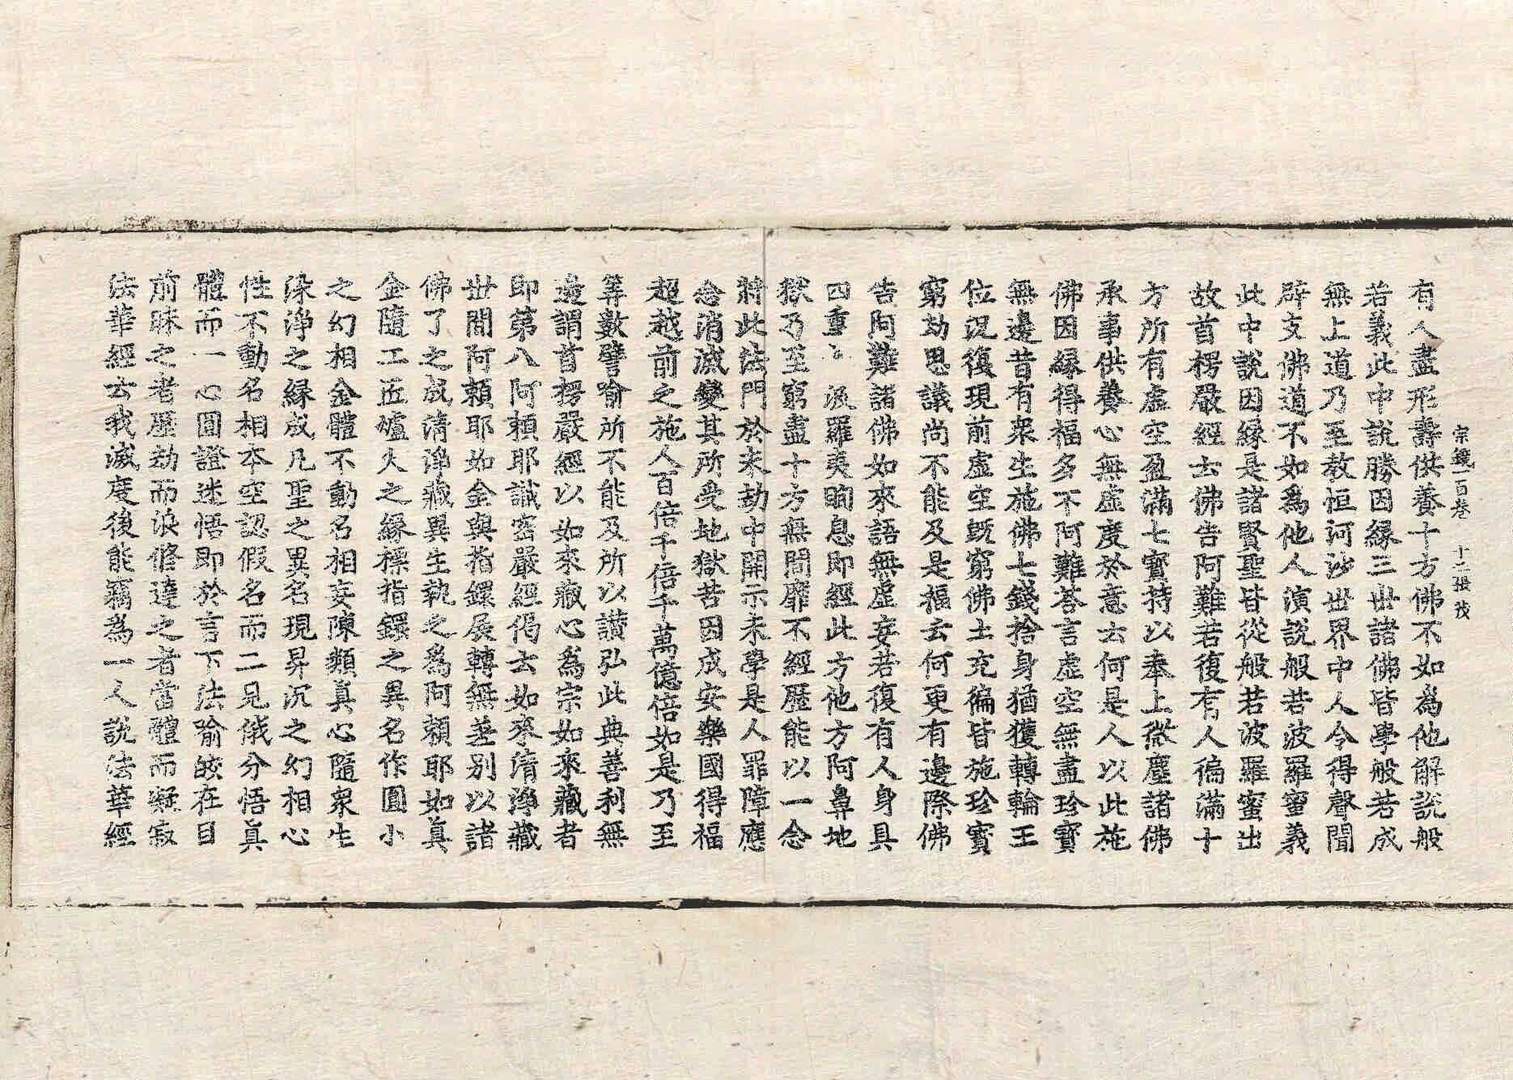 宗鏡一百卷　十二張　茂
有人盡形壽供養十方佛不如爲他解說般
若義此中說勝因緣三世諸佛皆學般若成
無上道乃至教恒河沙世界中人令得聲聞
辟支佛道不如爲他人演說般若波羅蜜義
此中說因緣是諸賢聖皆從般若波羅蜜出
故首楞嚴經云佛告阿難若復有人徧滿十
方所有虛空盈滿七寶持以奉上微塵諸佛
承事供養心無虛度於意云何是人以此施
佛因緣得福多不阿難荅言虛空無盡珍寶
無邊昔有衆生施佛七錢捨身猶獲轉輪王
位況復現前虛空旣窮佛土充徧皆施珍寶
窮劫思議尚不能及是福云何更有邊際佛
告阿難諸佛如來語無虛妄若復有人身具
四重 波羅夷瞬息即經此方他方阿鼻地
獄乃至窮盡十方無間靡不經歷能以一念
將此法門於末劫中開示未學是人罪障應
念消滅變其所受地獄苦因成安樂國得福
超越前之施人百倍千倍千萬億倍如是乃至
筭數譬喻所不能及所以讚弘此典善利無
邊謂首楞嚴經以如來藏心爲宗如來藏者
即第八阿賴耶識密嚴經偈云如來清淨藏
世間阿賴耶如金與指鐶展轉無差別以諸
佛了之成清淨藏異生執之爲阿賴耶如真
金隨工匠爐火之緣標指鐶之異名作圓小
之幻相金體不動名相妄陳類真心隨衆生
染淨之緣成凡聖之異名現昇沉之幻相心
性不動名相本空認假名而二見俄分悟真
體而一心圓證迷悟即於言下法喻皎在目
前昧之者歷劫而浪修達之者當體而凝寂
法華經云我滅度後能竊爲一人說法華經